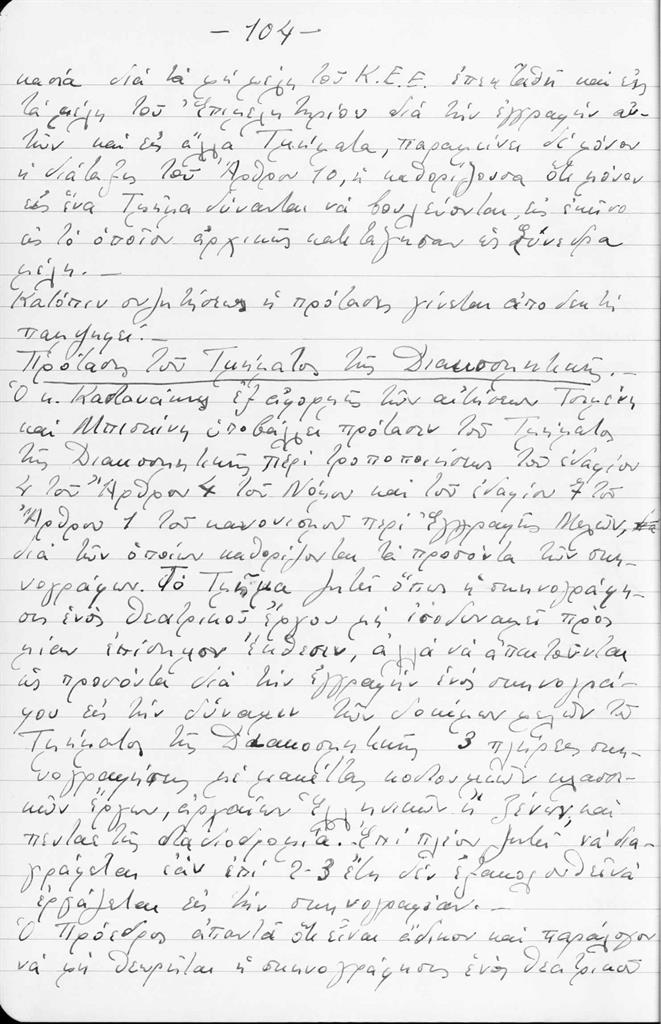 - 104 -
κασία διά τά μή μέλη τοῦ Κ.Ε.Ε. ἐπεκταθῆ καί εἰς
τά μέλη τοῦ Ἐπιμελητηρίου διά τήν ἐγγραφήν αὐ-
τῶν καί εἰς ἄλλα Τμήματα, παραμένει δέ μόνον
ἡ διάταξις τοῦ Ἄρθρου 10, ἡ καθορίζουσα ὅτι μόνον
εἰς ἕνα Τμῆμα δύνανται νά βουλεύονται, εἰς ἐκεῖνο
εἰς τό ὁποῖον ἀρχικῶς κατετάγησαν ὡς Σύνεδρα
μέλη. -
Κατόπιν συζητήσεως ἡ πρότασις γίνεται ἀποδεκτή
παμψηφεί. -
Πρότασις τοῦ Τμήματος τῆς Διακοσμητικῆς. -
Ὁ κ. Καστανάκης ἐξ ἀφορμῆς τῶν αἰτήσεων
καί Μπισκίνη ὑποβάλλει πρότασιν τοῦ Τμήματος
τῆς Διακοσμητικῆς περί τροποποιήσεως τοῦ ἐδαφίου
4 τοῦ Ἄρθρου 4 τοῦ Νόμου καί τοῦ ἐδαφίου 7 τοῦ
Ἄρθρου 1 τοῦ κανονισμοῦ περί Ἐγγραφῆς Μελῶν,
διά τῶν ὁποίων καθορίζονται τά προσόντα τῶν σκη-
νογράφων. Τό Τμῆμα ζητεῖ ὅπως ἡ σκηνογράφη-
σις ἑνός θεατρικοῦ ἔργου μή ἰσοδυναμεῖ πρός
μίαν ἐπίσημον ἔκθεσιν, ἀλλά νά ἀπαιτοῦνται
ὡς προσόντα διά τήν ἐγγραφήν ἑνός σκηνογρά-
φου εἰς τήν δύναμιν τῶν δοκίμων μελῶν τοῦ
Τμήματος τῆς Διακοσμητικῆς 3 πλήρεις σκη-
νογραφήσεις μέ μακέττας κοστουμιῶν κλασσι-
κῶν ἔργων, ἀρχαίων Ἑλληνικῶν ἤ ξένων, καί
πενταετής σταδιοδρομία. Ἐπί πλέον ζητεῖ νά δια-
γράφεται ἐάν ἐπί 2-3 ἔτη δέν ἐξακολουθεῖ νά
ἐργάζεται εἰς τήν σκηνογραφίαν. -
Ὁ Πρόεδρος ἀπαντᾶ ὅτι εἶναι ἄδικον καί παράλογον
νά μή θεωρῆται ἡ σκηνογράφησις ἑνός θεατρικοῦ